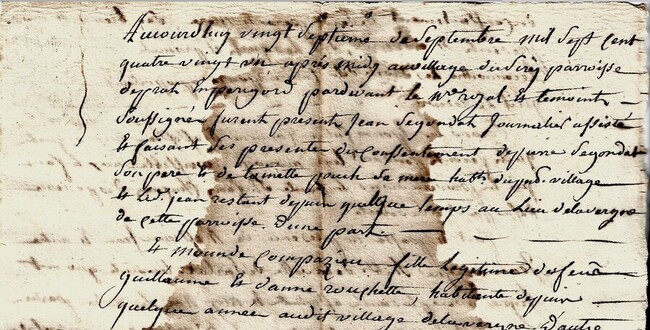 Aujourdhuy vingt septieme de septembre mil sept cent
quatre vingt un apres midy au village du parroisse
de prats en perigord pardevant le Nre. royal et temoins
soussignés furent presents jean segondat journalier assisté
et faisant ses presentes du consentement de segondat
son pere et de toinette sa mere habts. dud. village
et led. jean restant depuis quelque temps au lieu de lavergne
de cette parroisse. d'une part
et mounde compazieu fille legitime de feu
guillaume et d'anne rouchette, habitante depuis
quelque année audit village de lavergne d'autre